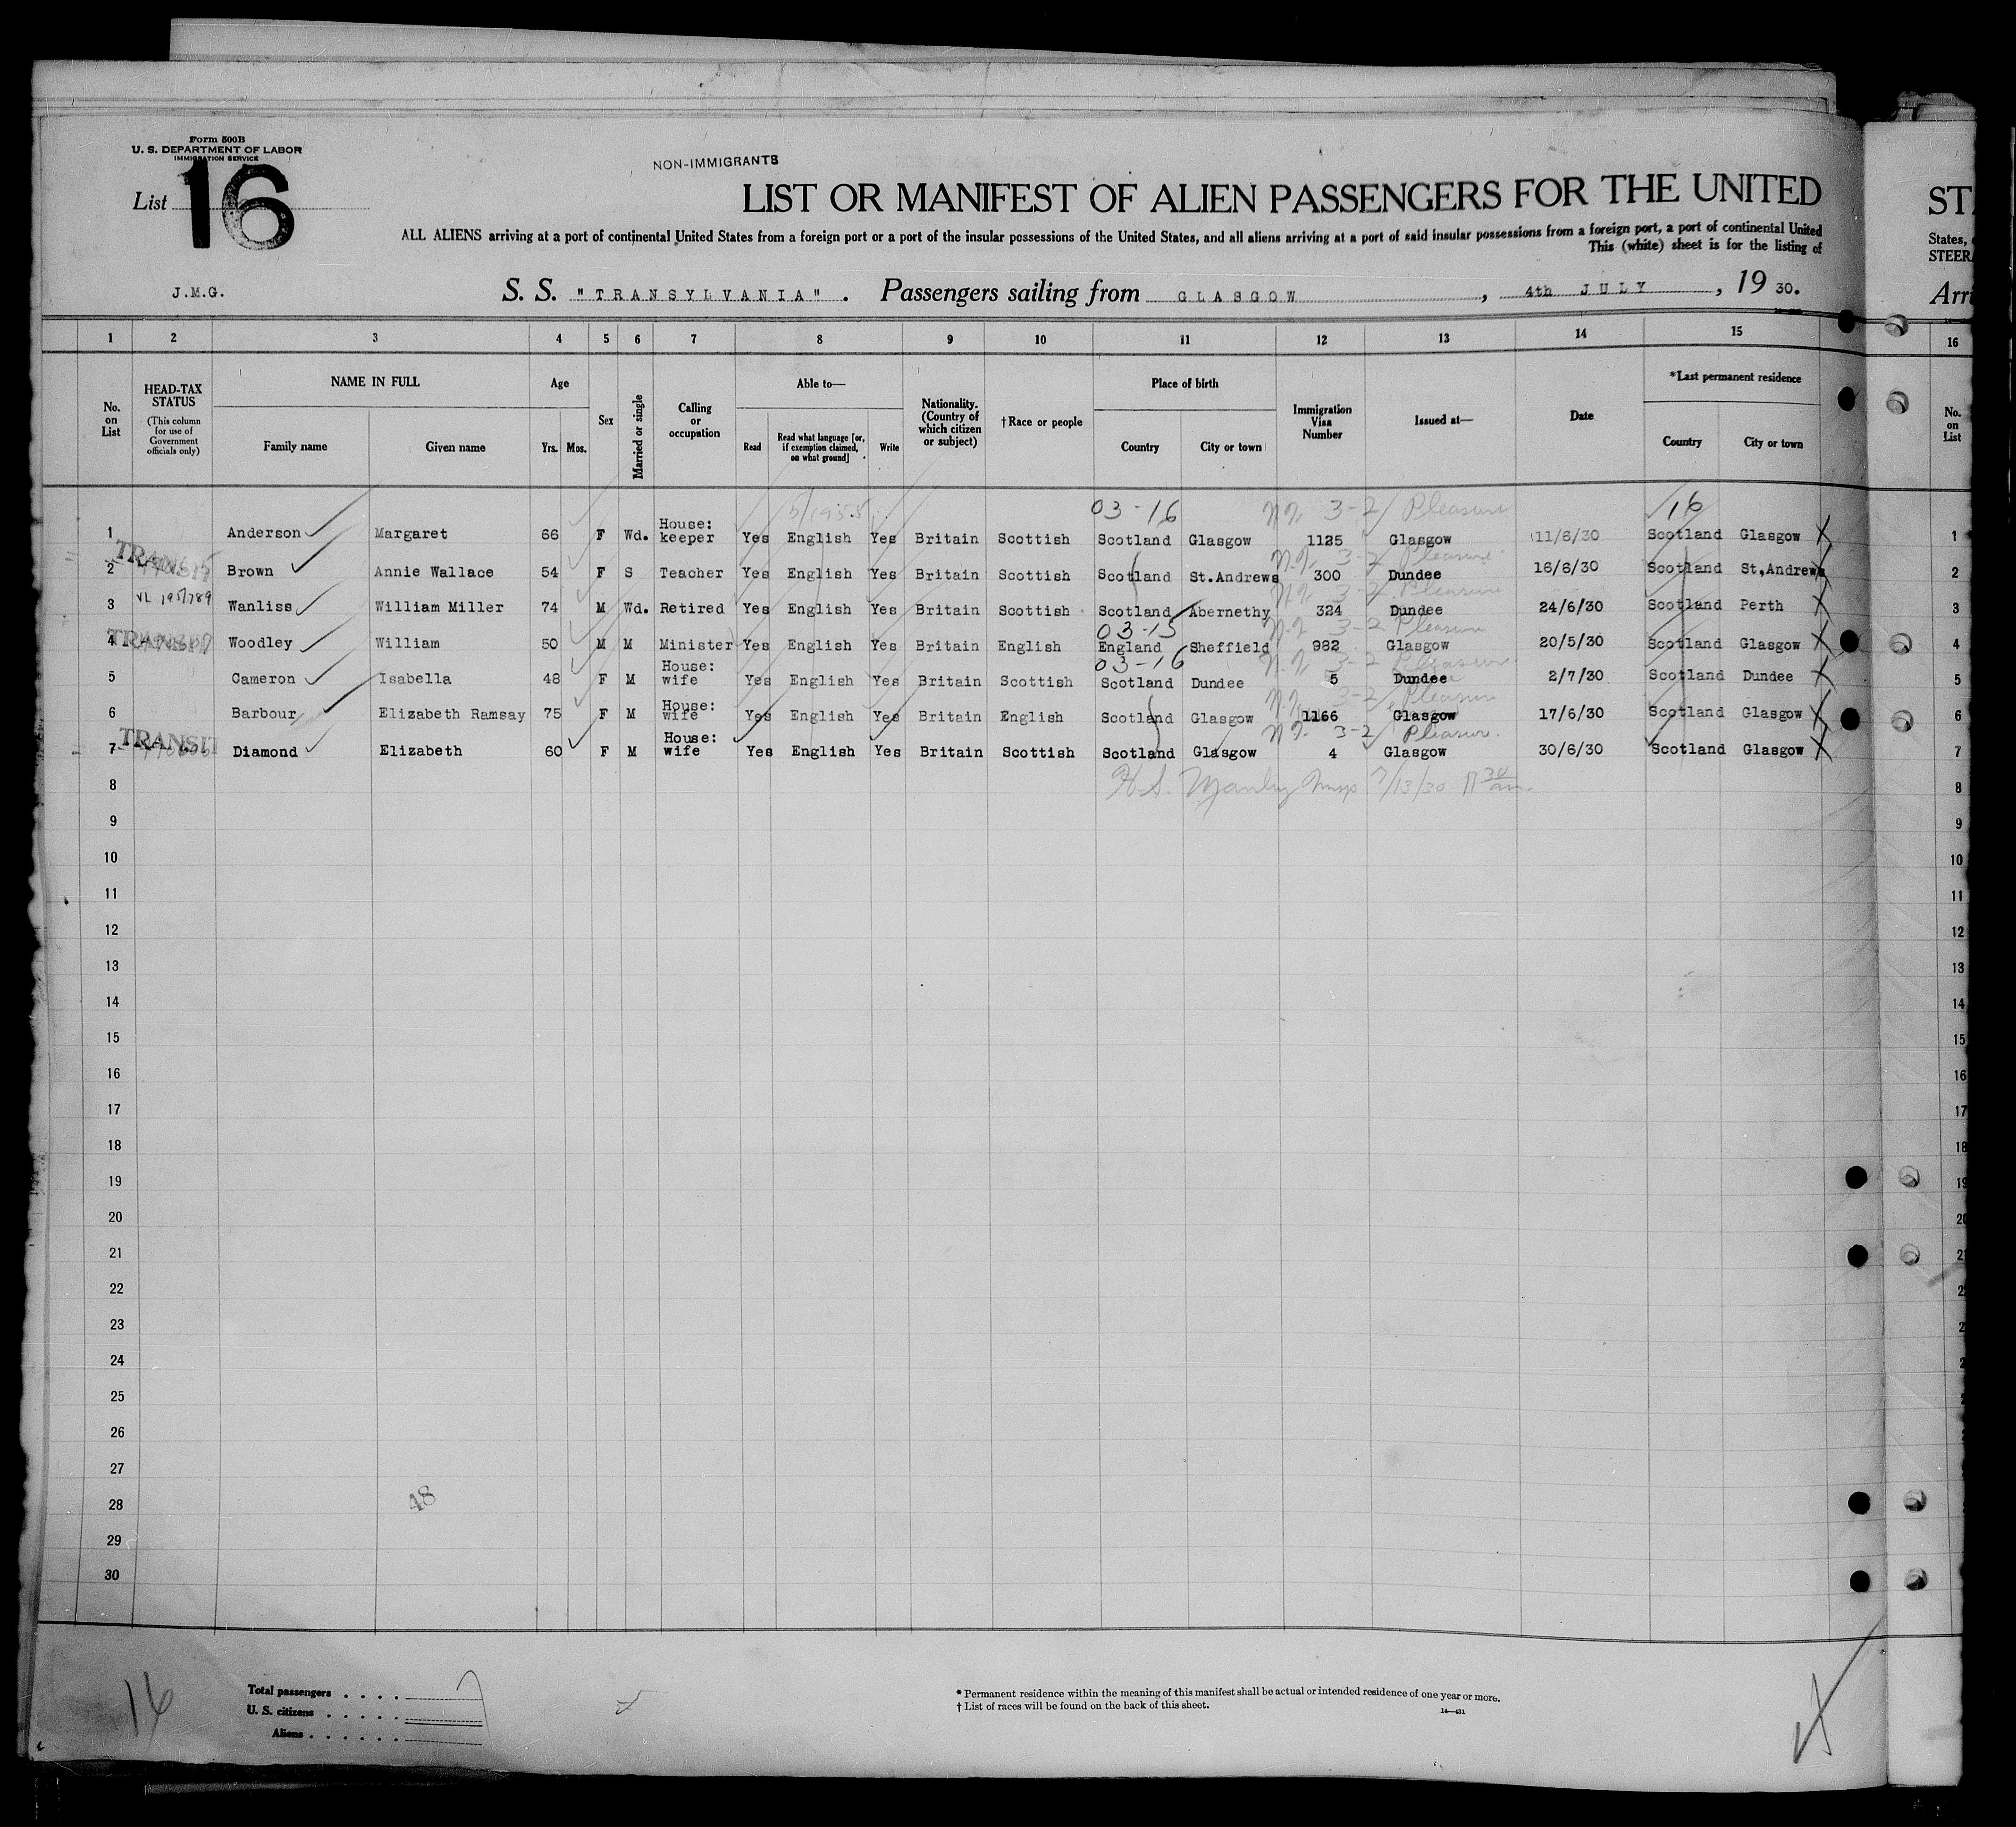 Form 500B
U. S. DEPARTMENT OF LABOR
IMMIGRATION SERVICE
NON-IMMIGRANTS
List 16
LIST OR MANIFEST OF ALIEN PASSENGERS FOR THE UNITED
ST
ALL ALIENS arriving at a port of continental United States from a foreign port or a port of the insular possessions of the United States, and all aliens arriving at a port of said insular possessions from a foreign port, a port of continental United
States,
This (white) sheet is for the listing of
STEER
J.M.G.
S. S. "TRANSYLVANIA". Passengers sailing from GLASGOW, 4th JULY, 19 30.
Arri
1 2 3 4 5 6 7 8 9 10 11 12 13 14 15 16
No. on List
HEAD-TAX STATUS
(This column for use of Government officials only)
NAME IN FULL
Family name Given name
Age
Yrs. Mos.
Sex
Married or single
Calling or occupation
Able to—
Read
Read what language [or, if exemption claimed, on what ground]
Write
Nationality. (Country of which citizen or subject)
†Race or people
Place of birth
Country City or town
Immigration Visa Number
Issued at—
Date
*Last permanent residence
Country City or town
No. on List
03-16 3-2 Pleasure 16
1 Anderson Margaret 66 F Wd. House: keeper Yes English Yes Britain Scottish Scotland Glasgow 1125 Glasgow 11/6/30 Scotland Glasgow X 1
TRANSIT
3-2 Pleasure
2 Brown Annie Wallace 54 F S Teacher Yes English Yes Britain Scottish Scotland St.Andrews 300 Dundee 16/6/30 Scotland St,Andrews X 2
3-2 Pleasure
3 Wanliss William Miller 74 M Wd. Retired Yes English Yes Britain Scottish Scotland Abernethy 324 Dundee 24/6/30 Scotland Perth X 3
03-15 3-2 Pleasure
4 TRANSIT Woodley William 50 M M Minister Yes English Yes Britain English England Sheffield 982 Glasgow 20/5/30 Scotland Glasgow X 4
03-16 3-2 Pleasure
5 Cameron Isabella 48 F M House: wife Yes English Yes Britain Scottish Scotland Dundee 5 Dundee 2/7/30 Scotland Dundee X 5
3-2 Pleasure
6 Barbour Elizabeth Ramsay 75 F M House: wife Yes English Yes Britain English Scotland Glasgow 1166 Glasgow 17/6/30 Scotland Glasgow X 6
TRANSIT
3-2 Pleasure
7 Diamond Elizabeth 60 F M House: wife Yes English Yes Britain Scottish Scotland Glasgow 4 Glasgow 30/6/30 Scotland Glasgow X 7
8 7/13/30 8
9 9
10 10
11 11
12 12
13 13
14 14
15 15
16 16
17 17
18 18
19 19
20 20
21 21
22 22
23
24
25
26
27
28 48
29
30
16
Total passengers 7
U. S. citizens
Aliens
* Permanent residence within the meaning of this manifest shall be actual or intended residence of one year or more.
† List of races will be found on the back of this sheet.